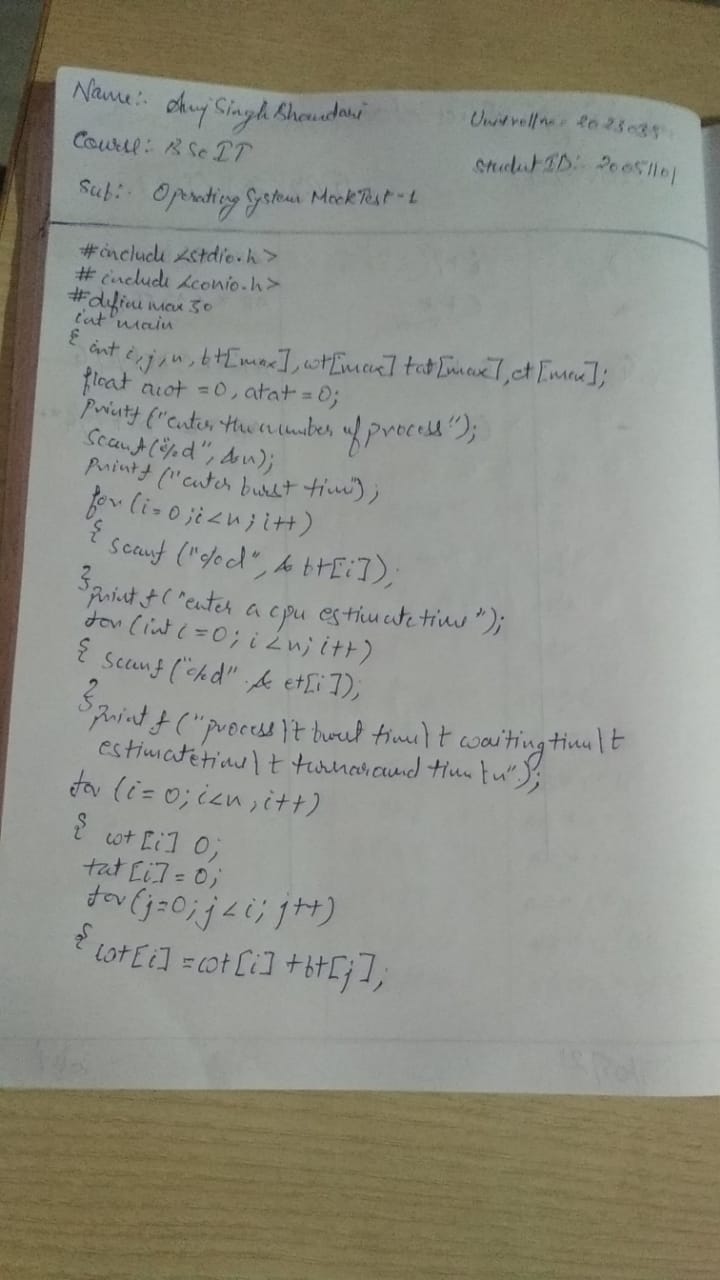 Name:- Anuj Singh Bhandari
Univrollno:- 2023035
Course:- BSc IT
Student ID:- 20051101
Sub:- Operating System Mock Test-1
#include <stdio.h>
# include <conio.h>
#define max 30
int main
{ int i,j,n, bt[max], wt[max] tat[max], et[max];
float awt =0, atat =0;
printf ("enter the number of process");
scanf("%d", &n);
printf ("enter burst time");
for (i=0;i<n;i++)
{ scanf ("%d", & bt[i]);
}
printf("enter a cpu estimate time");
for (int i=0; i<n; i++)
{ scanf ("%d" & et[i]);
}
printf ("process\t burst time\t waiting time\t
estimatetime\t turnaround time \n");
for (i=0; i<n, i++)
{ wt [i] 0;
tat [i] = 0;
for (j=0; j<i; j++)
{ wt[i] = wt[i] +bt[j];